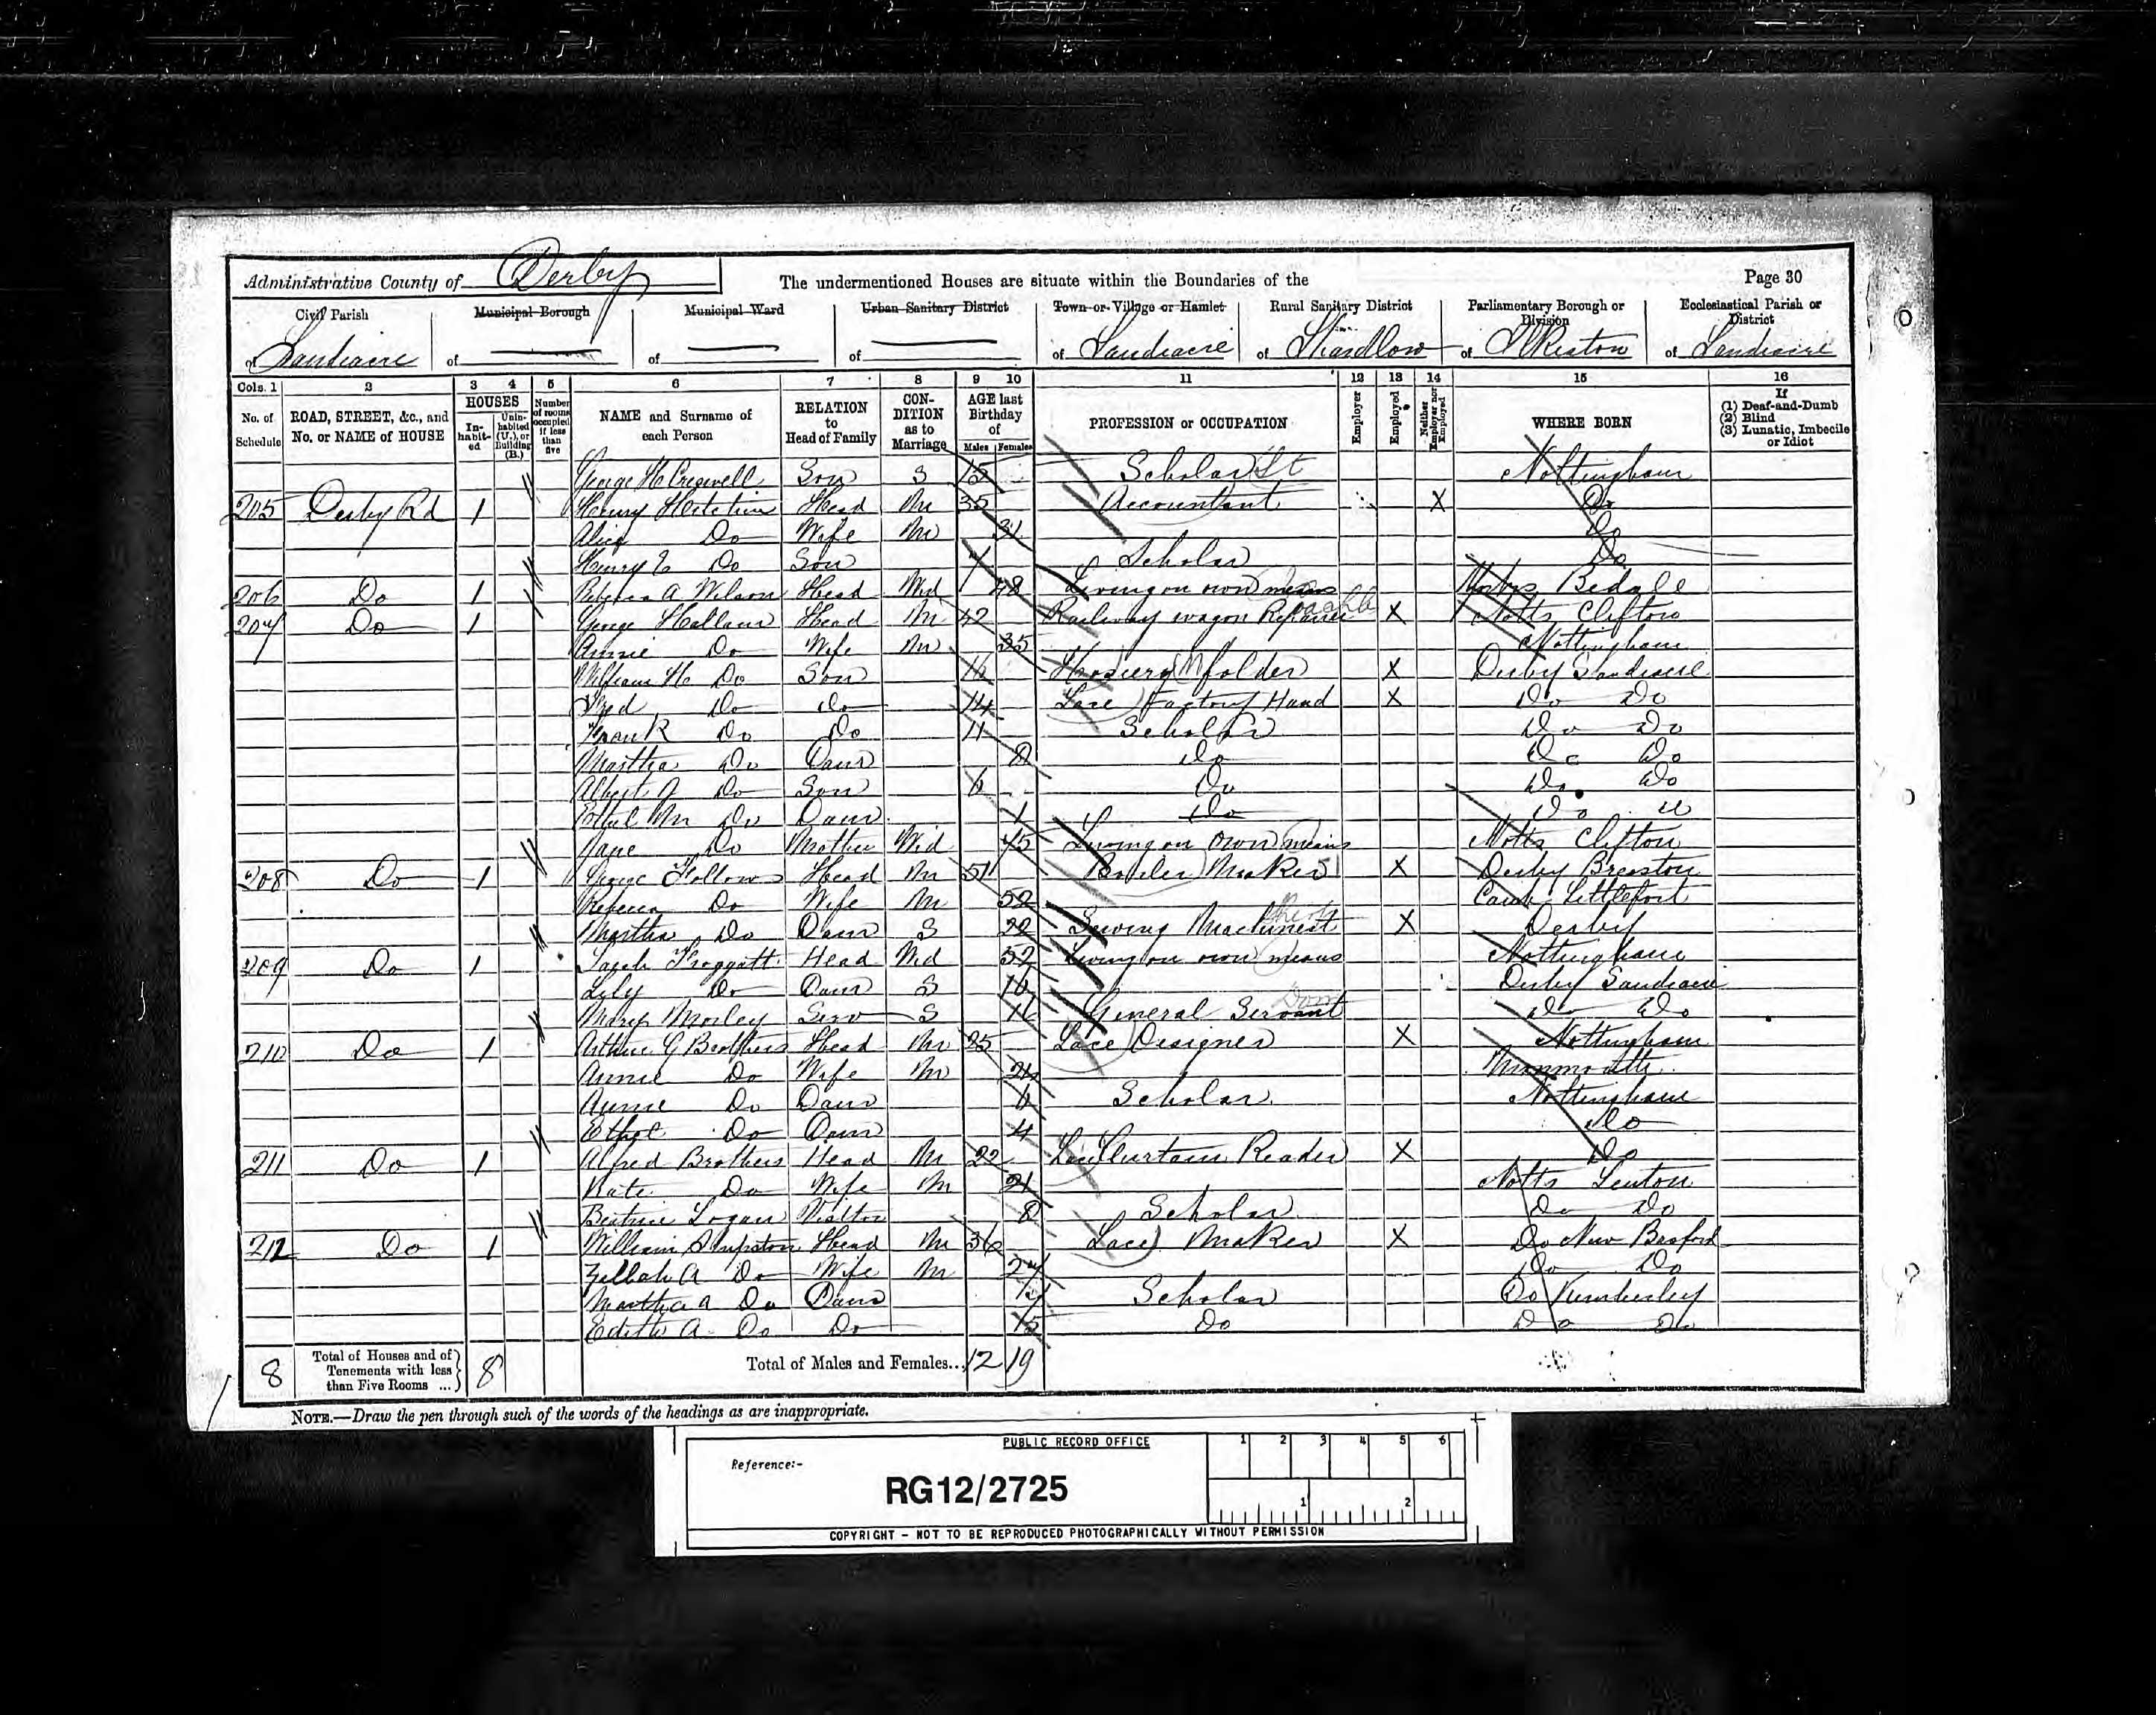 Administrative County of Derby
The undermentioned Houses are situate within the Boundaries of the
Page 30
Civil Parish of Sandiacre
Municipal Borough of
Municipal Ward of
Urban Sanitary District of
Town or Village or Hamlet of Sandiacre
Rural Sanitary District of Shardlow
Parliamentary Borough or Division of Ilkeston
Ecclesiastical Parish or District of Sandiacre
Cols. 1 2 3 4 5 6 7 8 9 10 11 12 13 14 15 16
No. of Schedule
ROAD, STREET, &c., and No. or NAME of HOUSE
HOUSES
In-habit-ed
Unin-habited (U.), or Building (B.)
Number of rooms occupied if less than five
NAME and Surname of each Person
RELATION to Head of Family
CON-DITION as to Marriage
AGE last Birthday of
Males Females
PROFESSION or OCCUPATION
Employer
Employed
Neither Employer nor Employed
WHERE BORN
If (1) Deaf-and-Dumb (2) Blind (3) Lunatic, Imbecile or Idiot
George H Creswell Son S 15 Scholar St Nottingham
205 Derby Rd 1 Henry Head M 35 Accountant X Do
Alice Do Wife M 31 Do
Henry E Do Son 7 Scholar Do
206 Do 1 Rebecca A Wilson Head Wid 48 Living on own means Bedale
207 Do 1 George Hallam Head M 42 Railway wagon Repairer X Notts Clifton
Annie Do Wife M 35 Nottingham
William H Do Son 16 Hosiery folder X Derby Sandiacre
Fred Do Do 14 Lace Factory Hand X Do Do
Frank Do Do 11 Scholar Do Do
Martha Do Daur 8 Do Do Do
Albert J Do Son 6 Do Do Do
Ethel M Do Daur 1 Do Do
Jane Do Mother Wid 75 Living on own means Notts Clifton
208 Do 1 George Hollows Head M 51 Boiler Maker X Derby Breaston
Rebecca Do Wife M 52 Camb Littleport
Martha Do Daur S 22 Sewing Machinest X Derby
209 Do 1 Sarah Froggatt Head Wd 52 Living on own means Nottingham
Lily Do Daur S 16 Derby Sandiacre
Mary Morley Serv S 16 General Servant Dom Do Do
210 Do 1 Arthur G Brothers Head M 25 Lace Designer X Nottingham
Annie Do Wife M 24 Monmouth
Annie Do Daur 6 Scholar Nottingham
Ethel Do Daur 4 Do
211 Do 1 Alfred Brothers Head M 22 Lace Curtain Reader X Do
Kate Do Wife M 21 Notts Lenton
Beatrice Logan Visitor 8 Scholar Do Do
212 Do 1 William Simpston Head M 36 Lace Maker X Do New Basford
Zillah A Do Wife M 27 Do Do
Martha A Do Daur 7 Scholar Do Kimberley
Edith A Do Do 5 Do Do Do
8 Total of Houses and of Tenements with less than Five Rooms ... 8 Total of Males and Females... 12 19
NOTE.—Draw the pen through such of the words of the headings as are inappropriate.
PUBLIC RECORD OFFICE
1 2 3 4 5 6
Reference:-
RG12/2725
1 2
COPYRIGHT - NOT TO BE REPRODUCED PHOTOGRAPHICALLY WITHOUT PERMISSION